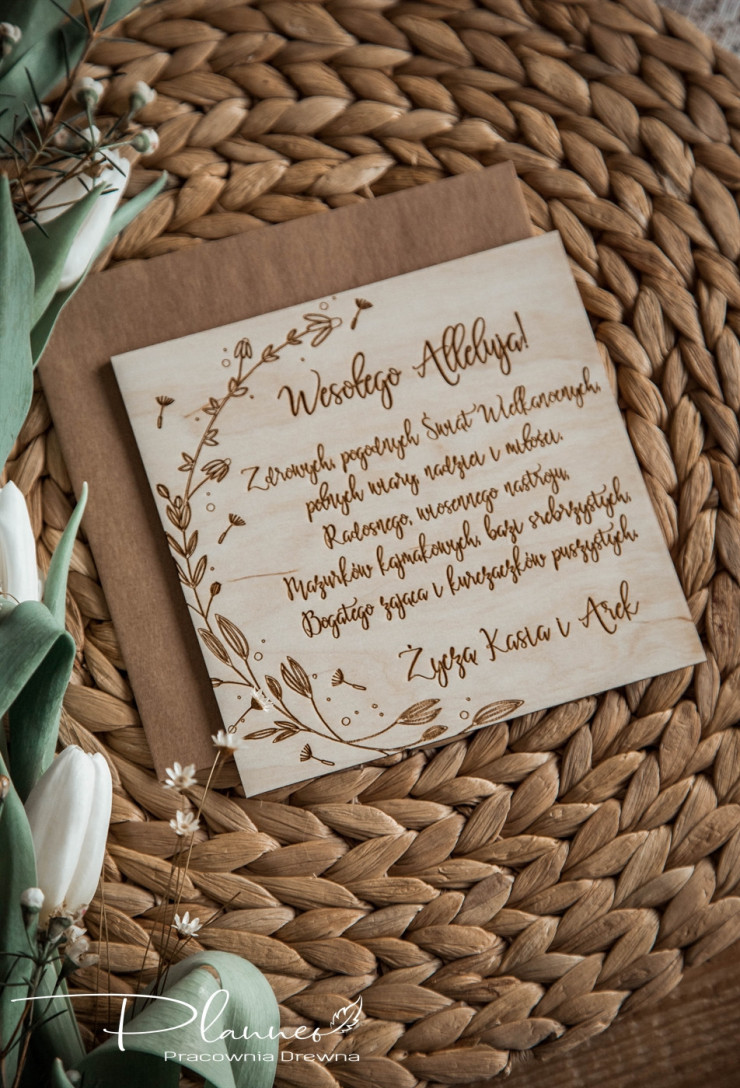 Wesołego Alleluja!
Zdrowych, pogodnych Świąt Wielkanocnych,
pełnych wiary, nadziei i miłości.
Radosnego, wiosennego nastroju,
Mazurków kajmakowych, bazi srebrzystych,
Bogatego zająca i kurczaczków puszystych,
Życzą Kasia i Arek
Planneo
Pracownia Drewna